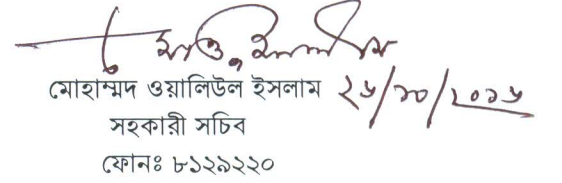 মোহাম্মদ ওয়ালিউল ইসলাম ২৬/১০/২০১৬
সহকারী সচিব
ফোনঃ ৮১২৯২২০